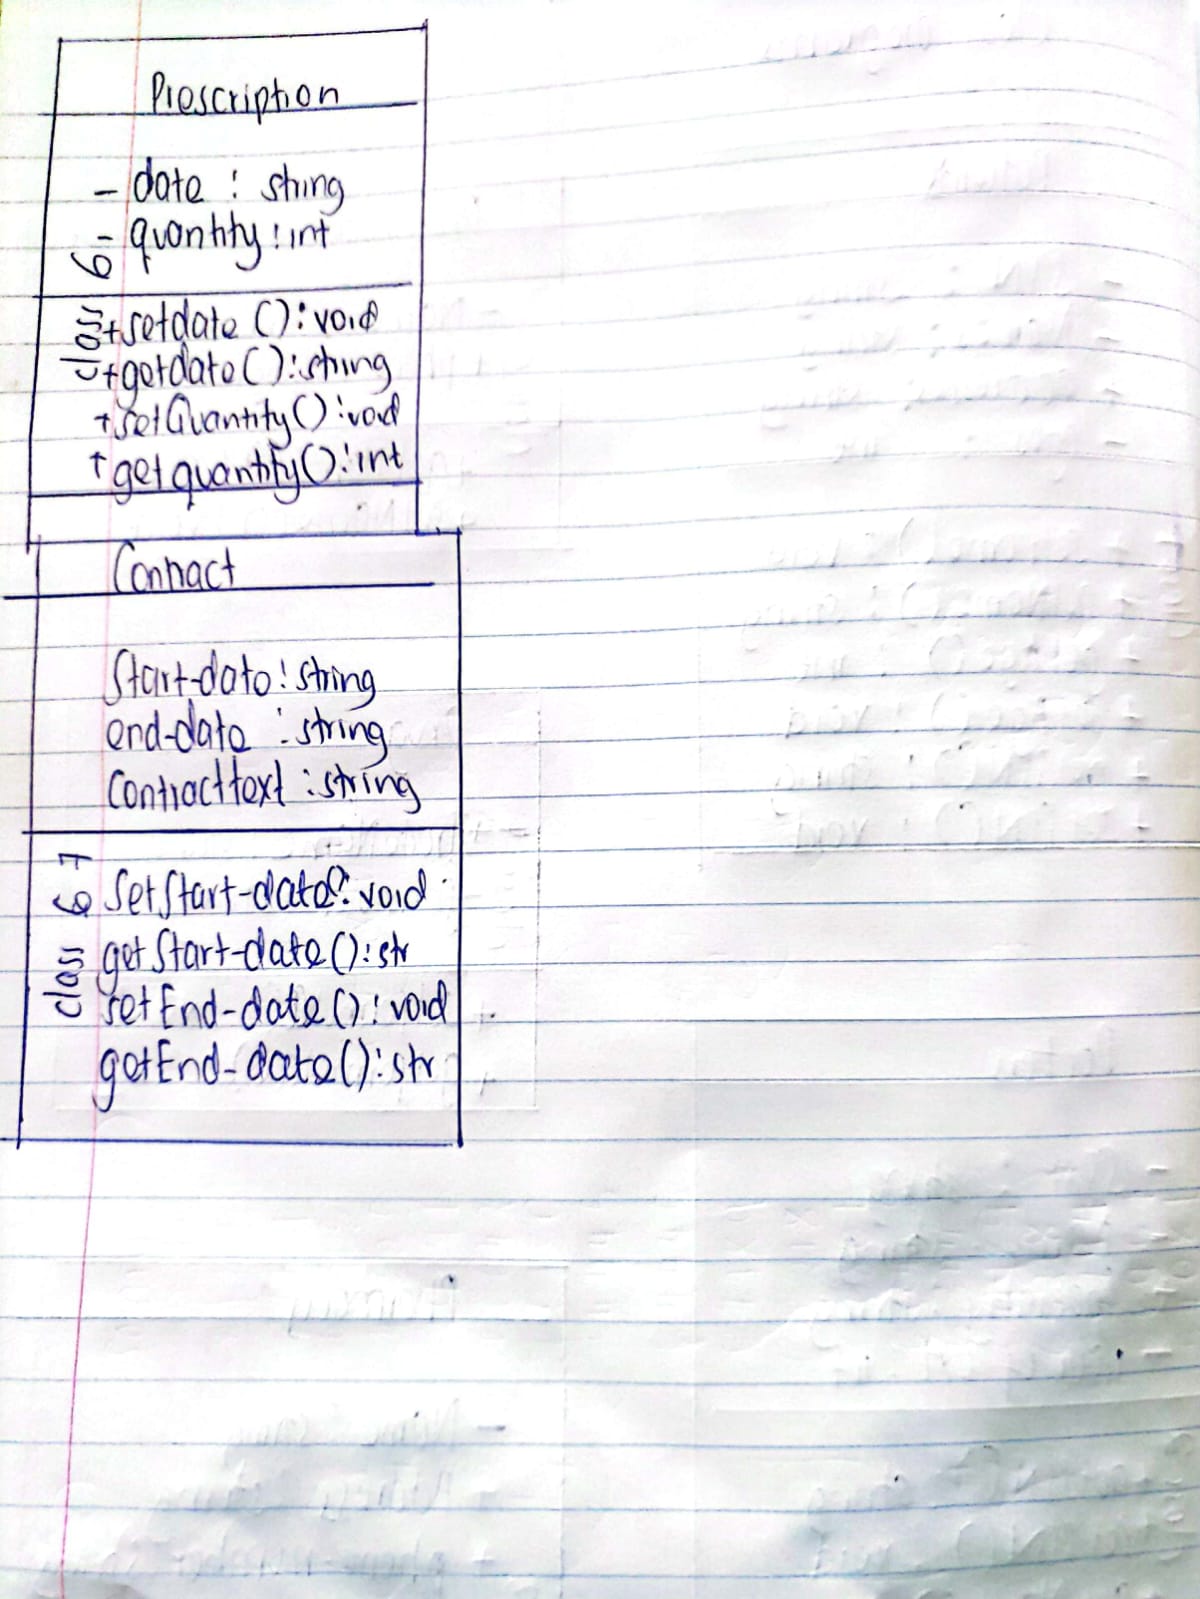 Prescription
- date : string
- quantity : int
class 6
+ setdate () : void
+ getdate () : string
+ setQuantity () : void
+ getquantity () : int
Contract
Start-date : string
end-date : string
Contracttext : string
class 6 7
SetStart-date() : void
getStart-date () : str
setEnd-date () : void
getEnd-date () : str